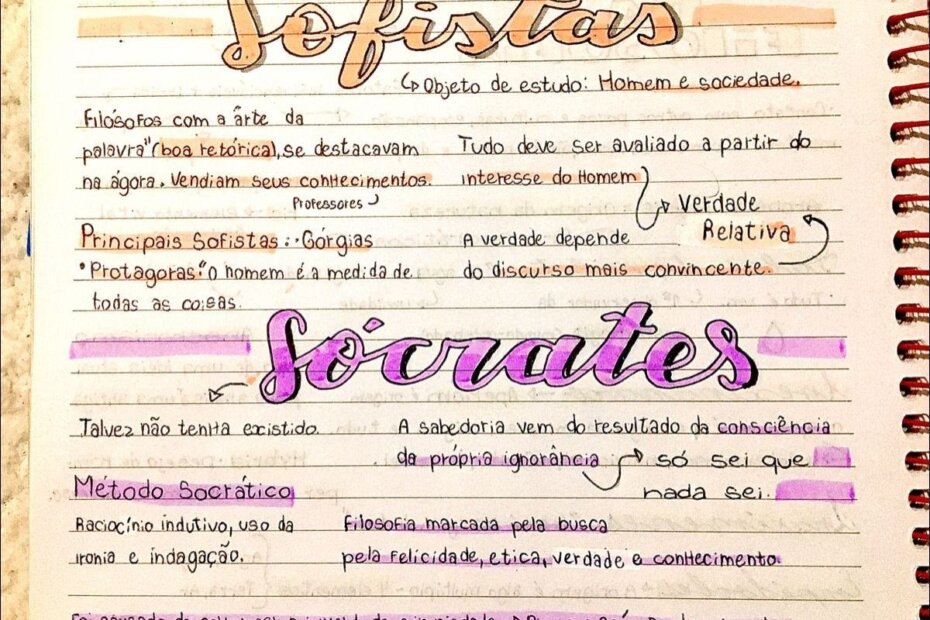 Sofistas
↳ Objeto de estudo: Homem e sociedade.
Filósofos com a arte da
palavra" (boa retórica), se destacavam
na ágora. Vendiam seus conhecimentos.
Professores
Principais Sofistas: · Górgias
• Protagoras: "O homem é a medida de
todas as coisas.
Tudo deve ser avaliado a partir do
interesse do Homem
Verdade
Relativa
A verdade depende
do discurso mais convincente.
Sócrates
Talvez não tenha existido.
Método Socrático
Raciocínio indutivo, uso da
ironia e indagação.
A sabedoria vem do resultado da consciência
da própria ignorância
só sei que
nada sei.
Filosofia marcada pela busca
pela felicidade, etica, verdade e conhecimento.